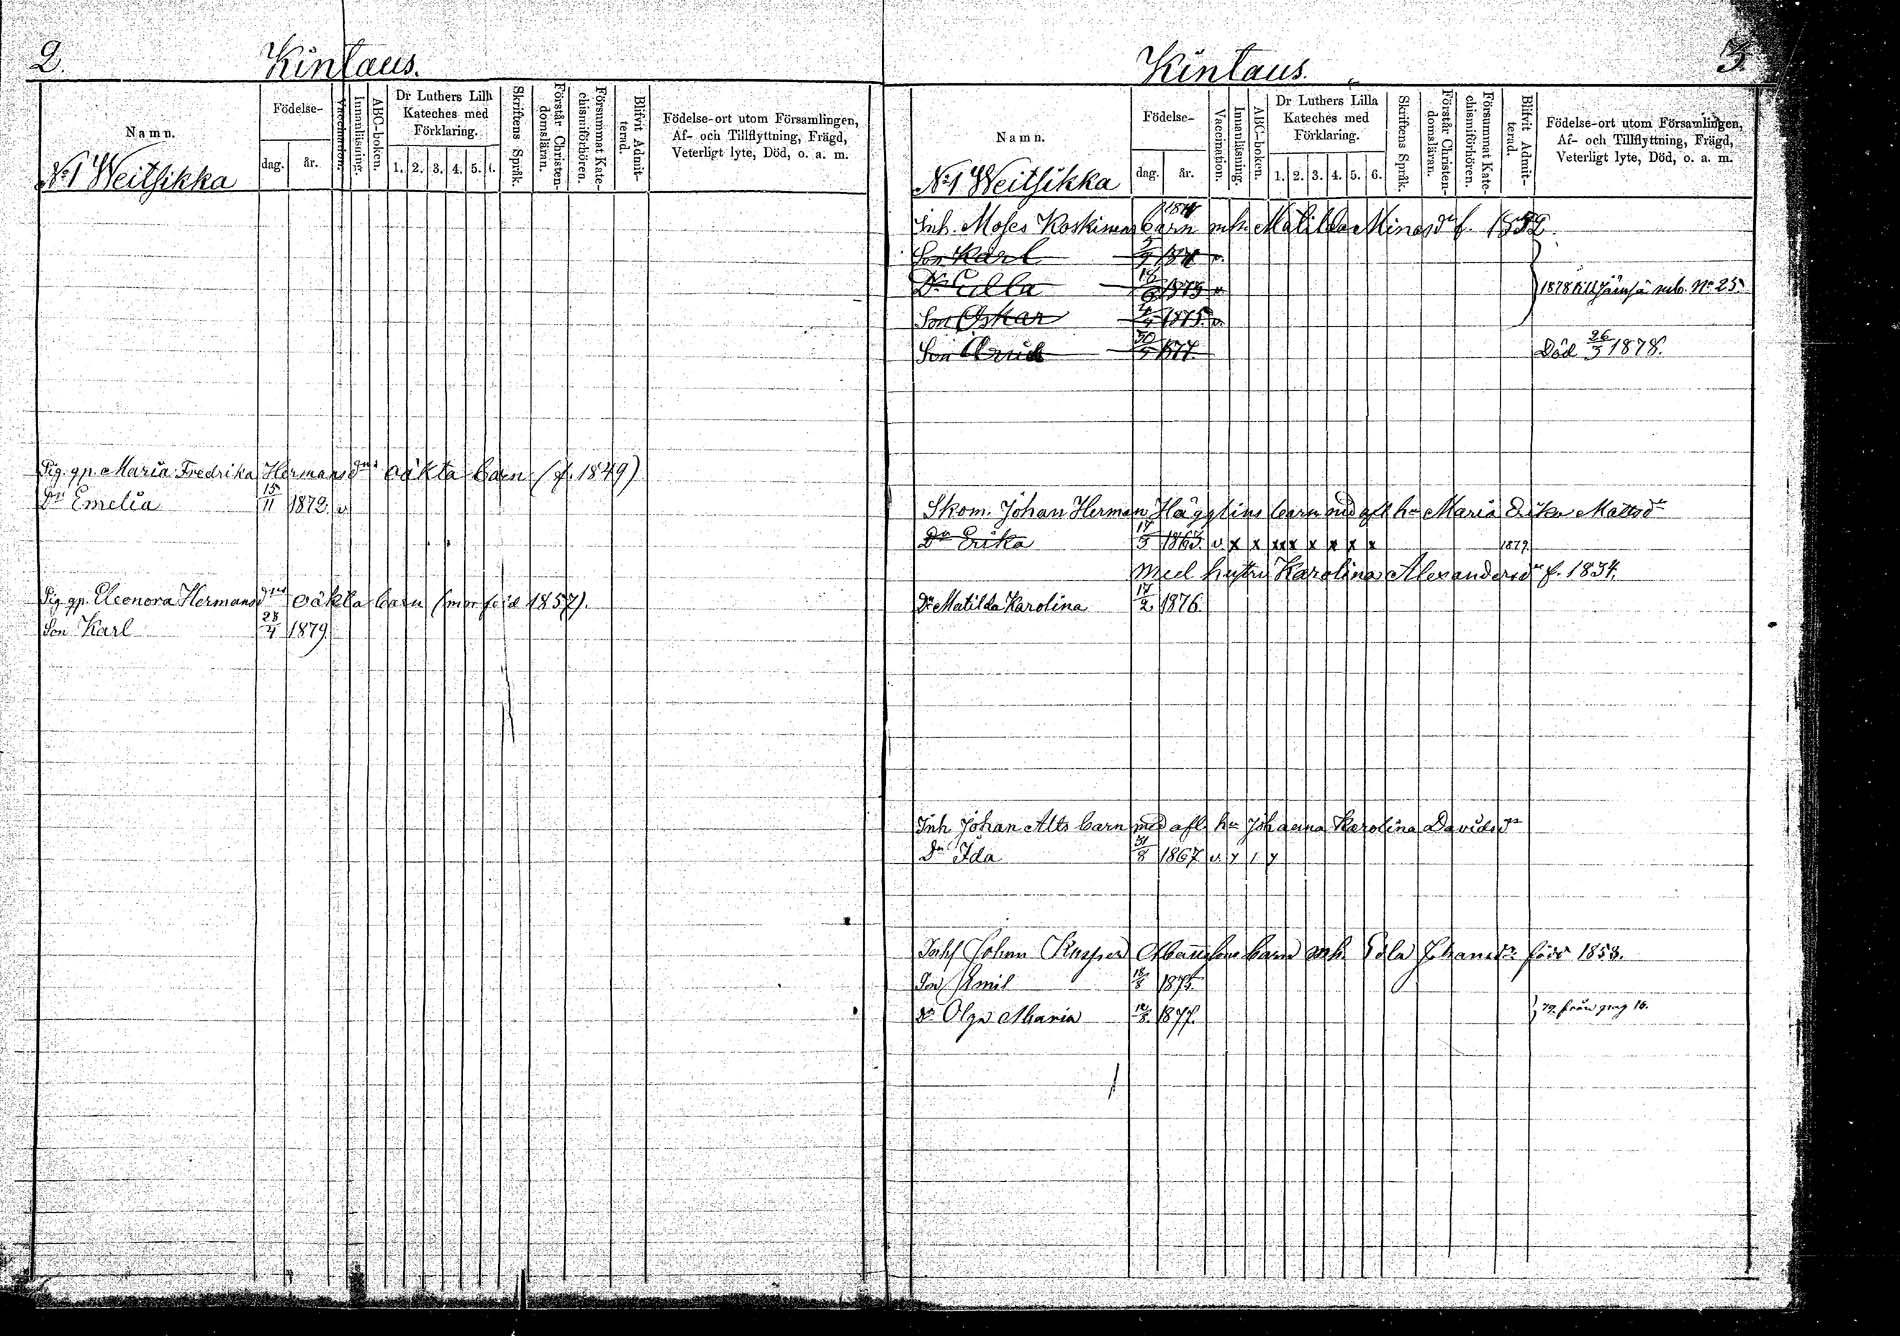 2.
Kintaus.
Namn.
Födelse-
dag.
år.
Vaccination.
Innanläsning.
ABC-boken.
Dr Luthers Lilla Kateches med Förklaring.
1. 2. 3. 4. 5. 6.
Skriftens Språk.
Förstår Christendomsläran.
Försummat Katechismiförhören.
Blifvit Admitterad.
Födelse-ort utom Församlingen,
Af- och Tillflyttning, Frägd,
Veterligt lyte, Död, o. a. m.
No 1 Weitsikka
Pig. gp. Maria Fredrika Hermansdrs oäkta barn (f. 1849)
Dr Emelia 15/11 1872 v
Pig. gp. Eleonora Hermansdrs oäkta barn (mor född 1857).
Son Karl 28/4 1879
3.
Kintaus.
Namn.
Födelse-
dag.
år.
Vaccination.
Innanläsning.
ABC-boken.
Dr Luthers Lilla Kateches med Förklaring.
1. 2. 3. 4. 5. 6.
Skriftens Språk.
Förstår Christendomsläran.
Försummat Katechismiförhören.
Blifvit Admitterad.
Födelse-ort utom Församlingen,
Af- och Tillflyttning, Frägd,
Veterligt lyte, Död, o. a. m.
No 1 Weitsikka
Inh. Moses Koskinens barn m. h. Matilda Minasdr f. 1852.
Son Karl v.
Dr Edla 1873 v
Son Oskar 1875 v.
1878 till Jämsä No 25.
Son 30/ 1877. Död 26/3 1878.
Skom. Johan Herman Hägglins barn med afl. h. Maria Erika Mattsdr
Dr Erika 17/5 1863. v. x x xx x x x x x 1879.
med hustru Karolina Alexandersdr f. 1834.
Dr Matilda Karolina 17/2 1876
Inh Johan Alts barn med afl. h. Johanna Karolina Davidsdr
Dr Ida 31/8 1867 v.
Johan Kasper barn m. h. Edla Johansdr född 1858.
Son Emil 18/8 1875.
Dr Olga Maria 12/8. 1877. 79. från pag 16.